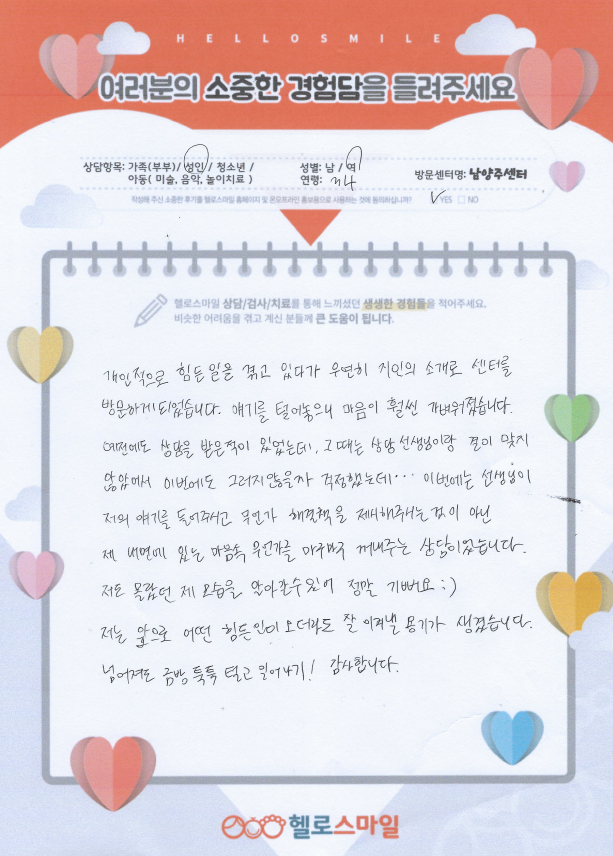 HELLOSMILE
여러분의 소중한 경험담을 들려주세요
상담항목: 가족(부부)/ 성인 / 청소년 /
아동( 미술, 음악, 놀이치료 )
성별: 남 / 여
연령: 34
방문센터명: 남양주센터
작성해 주신 소중한 후기를 헬로스마일 홈페이지 및 온오프라인 홍보용으로 사용하는 것에 동의하십니까? ✓YES □ NO
헬로스마일 상담/검사/치료를 통해 느끼셨던 생생한 경험들을 적어주세요.
비슷한 어려움을 겪고 계신 분들께 큰 도움이 됩니다.
개인적으로 힘든일을 겪고 있다가 우연히 지인의 소개로 센터를
방문하게되었습니다. 얘기를 털어놓으니 마음이 훨씬 가벼워졌습니다.
예전에도 상담을 받은적이 있었는데, 그때는 상담 선생님이랑 결이 맞지
않았어서 이번에도 그러지않을까 걱정했는데... 이번에는 선생님이
저의 얘기를 들어주시고 무언가 해결책을 제시해주시는것이 아닌
제 내면에 있는 마음속 무언가를 마구마구 꺼내주는 상담이었습니다.
저도 몰랐던 제 모습을 알아갈수있어 정말 기뻐요 :)
저는 앞으로 어떤 힘든일이 오더라도 잘 이겨낼 용기가 생겼습니다.
넘어져도 금방 툭툭 털고 일어나기! 감사합니다.
헬로스마일